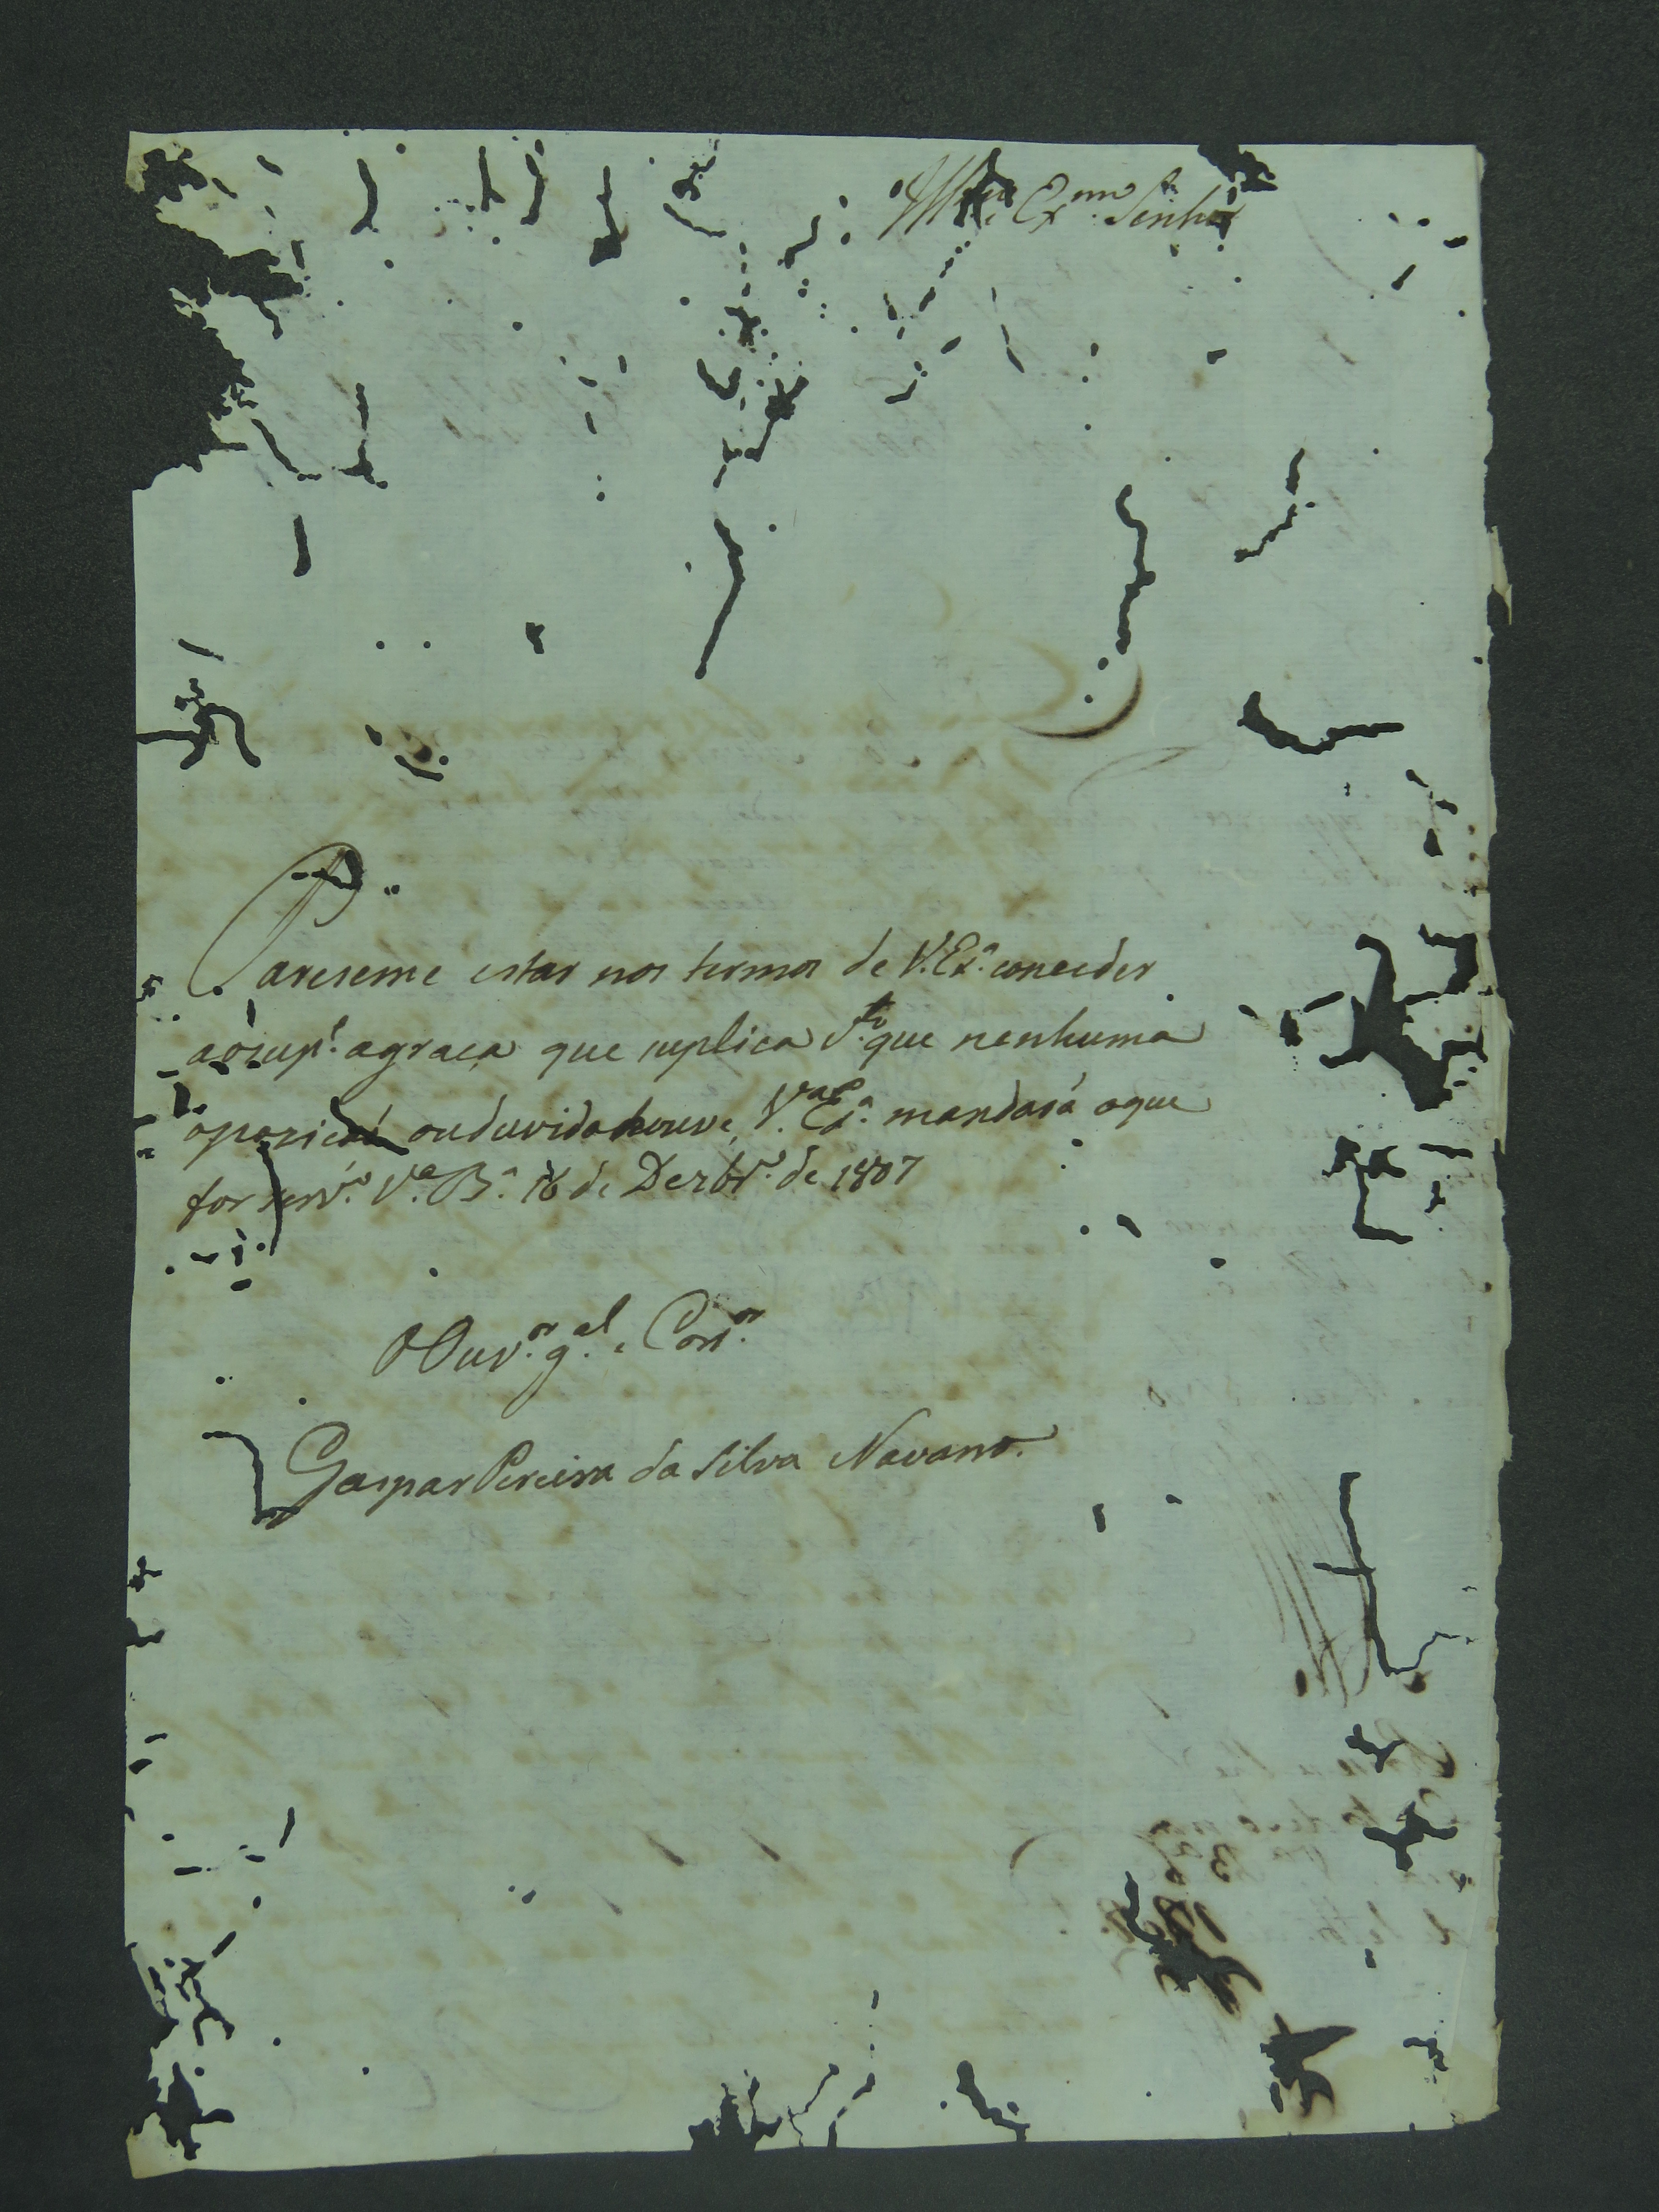 Illmo. Exmo. Senhor
Pareseme estar nos termos de V. Exa. conceder
aosupe. agraça que suplica Vto. que nenhuma
opozicaó ouduvida houve, Va. Exa. mandará oque
for servo. Va. Ba. 16 de Dezbro. de 1807
O Ouvor. gal. e Corror.
Gaspar Pereira da Silva Navarro.